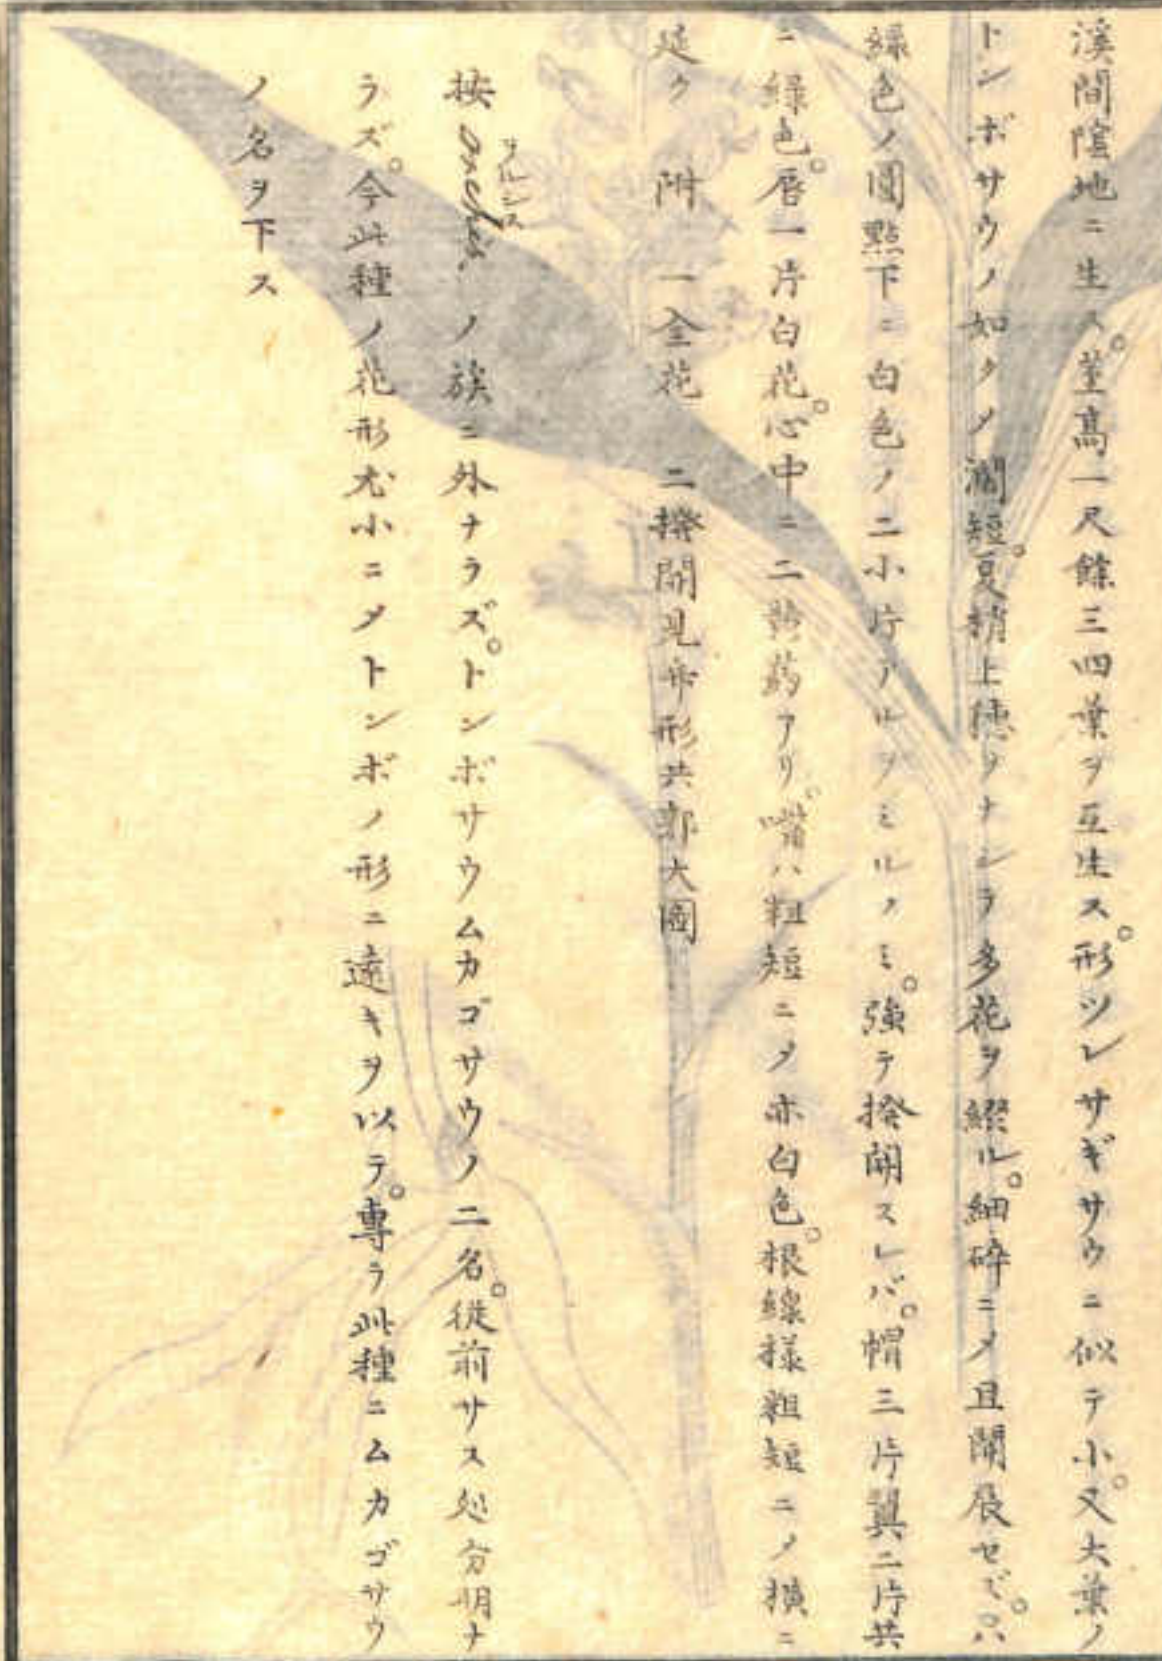 溪間陰地ニ生ス。莖高一尺餘三四葉ヲ互生ス。形ツレサギサウニ似テ小。又大葉ノ
トンボサウノ如クメ濶短。夏梢上穗ヲナシテ多花ヲ綴ル。細碎ニメ且開展セズ。只
綠色ノ圓點下ニ白色ノ二小片アルヲミルノミ。強テ撥開スレバ。帽三片翼二片共
ニ綠色。唇一片白花。心中ニ二黄葯アリ嘴ハ粗短ニメ亦白色。根線樣粗短ニメ横ニ
延ク 附 一全花 二撥開見布形共郭大圖
按 ヲルシス ノ族ニ外ナラズ。トンボサウムカゴサウノ二名。從前サス処分明ナ
ラズ。今此種ノ花形尤小ニメトンボノ形ニ遠キヲ以テ。專ラ此種ニムカゴサウ
ノ名ヲ下ス